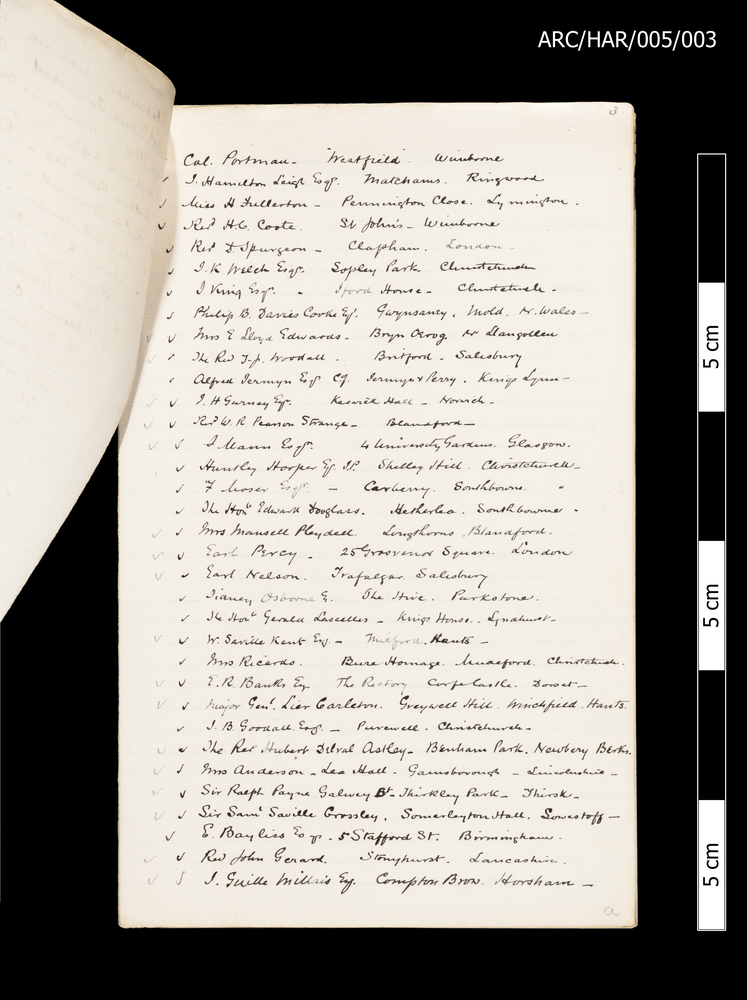 ARC/HAR/005/003
3
Col. Portman - "Westfield" Wimborne
J. Hamilton Leigh Esqr. Matchams. Ringwood
Miss H Fullerton - Pennington Close. Lymington.
Revd H.C. Coote. St John's - Wimborne
Revd T. Spurgeon - Clapham. London.
J.K Welch Esqr. Sopley Park Christchurch
J King Esqr. - Iford House - Christchurch.
Philip B. Davies Cooke Esq. Gwysaney. Mold. N. Wales -
Mrs E Lloyd Edwards. Bryn Nr Llangollen
The Rev Woodall. Britford - Salisbury
Alfred Jermyn Esqr Jermyn & Perry. Kings Lynn -
J.H Gurney Esqr. Keswick Hall - Norwich -
Revd W.R Pearson Strange - Blandford -
J Mann Esqr. 4 University Gardens. Glasgow.
Huntley Harper Esq. J.P. Shelley Hill. Christchurch -
F Moser Esqr. - Carberry. Southbourne. "
The Honbl Edward Douglass. Hetherlea. Southbourne -
Mrs Mansell Pleydell. Longthorns. Blandford.
Earl Percy - 25 Grosvenor Square. London
Earl Nelson. Trafalgar. Salisbury
Sidney Osborne E. The Hive. Parkstone.
The Honbl Gerald Lascelles - Kings House. Lyndhurst -
W. Saville Kent Esq - Milford. Hants -
Mrs Ricardo. Bure Homage. Mudeford. Christchurch.
E.R. Banks Esq The Rectory Corfe Castle. Dorset -
Major Genl. Lier Carleton. Greywell Hill. Winchfield. Hants.
J.B. Goodall. Esq - Purewell. Christchurch -
The Rev Hubert Delval Astley - Benham Park. Newbery Berks.
Mrs Anderson - Lea Hall - Gainsborough - Lincolnshire -
Sir Ralph Payne Galwey Bt - Thirkley Park - Thirsk -
Sir Saml Saville Crossley. Somerleyton Hall. Lowestoff -
E. Bayliss Esqr. 5 Stafford St. Birmingham.
Rev John Gerard. Stonyhurst. Lancashire.
J. Guille Millais Esq. Compton Brow. Horsham -
a
5 cm
5 cm
5 cm